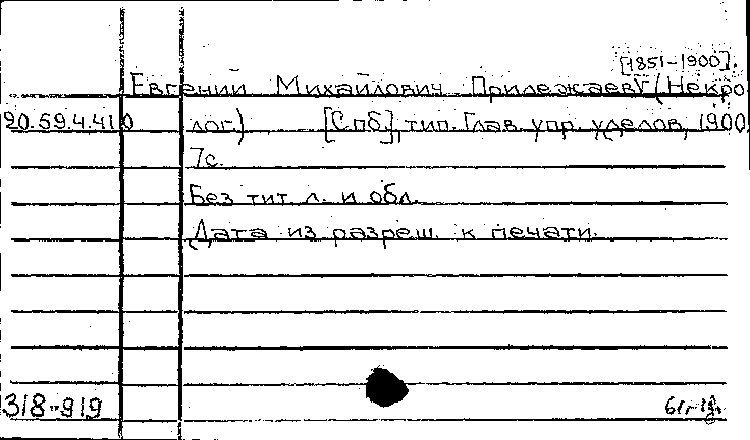 [1851-1900].
Евгений Михайлович Прилежаев (Некро
20.59.4.410 лог.) [Спб], тип. Глав. упр. уделов, 1900
7с.
Без тит. л. и обл.
Дата из разреш. к печати.
318-919